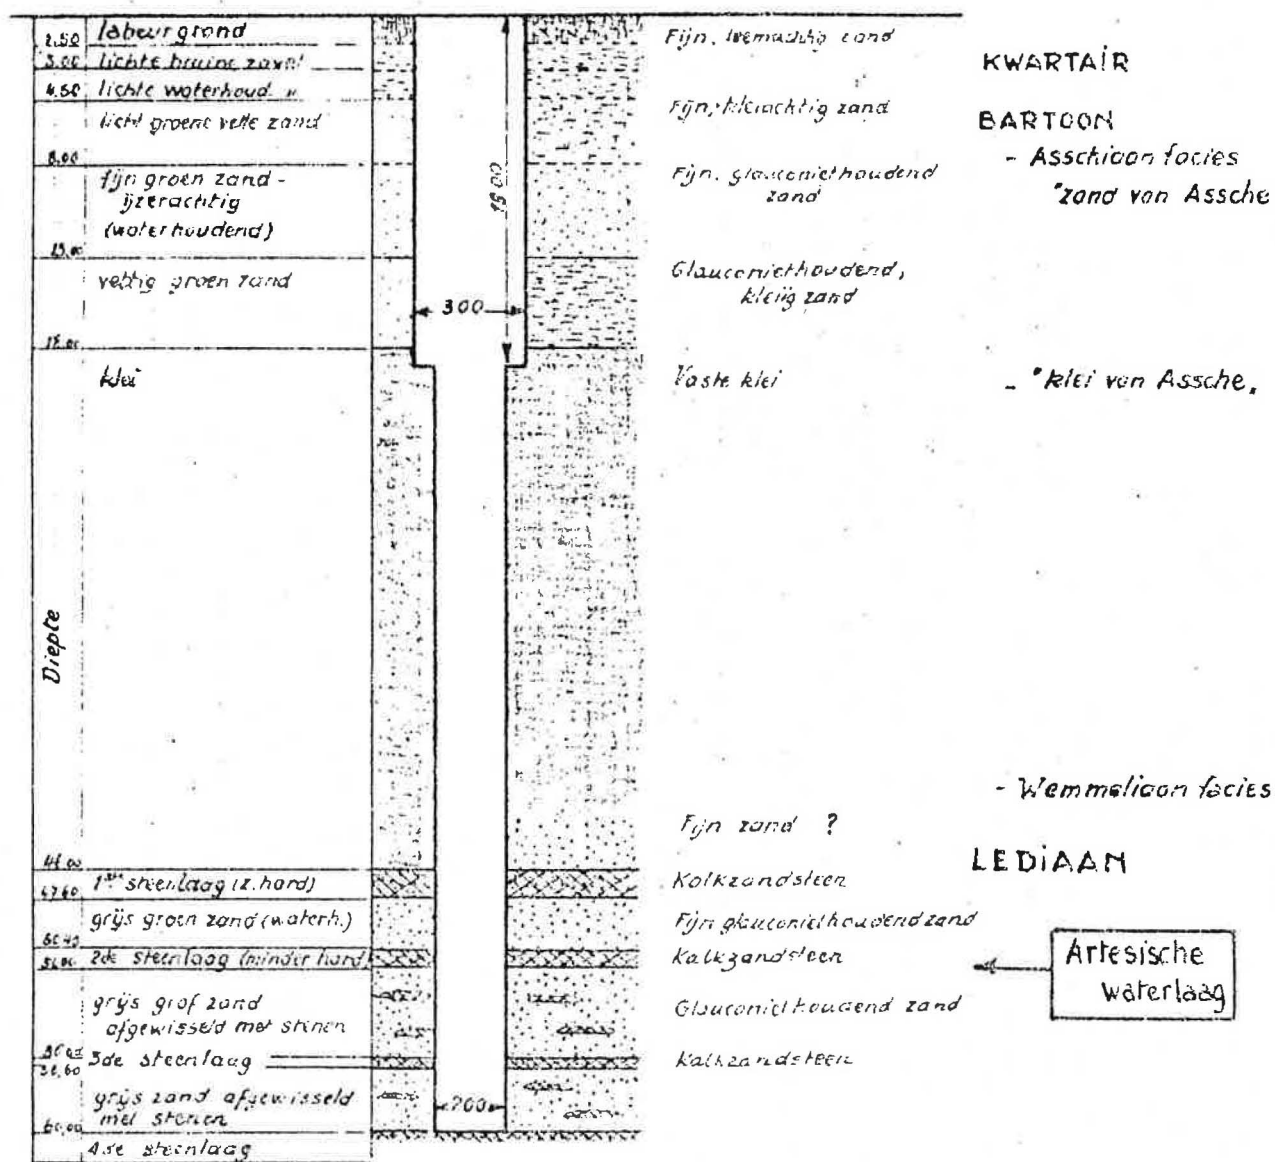 2.50 labeurgrond
3.00 lichte bruine zavel
4.50 lichte waterhoud. "
licht groene vette zand
8.00
fijn groen zand -
ijzerachtig
(waterhoudend)
13.00
vettig groen zand
18.00
klei
Diepte
1ste steenlaag (z. hard)
47.60
grijs groen zand (waterh.)
50.40
51.00 2de steenlaag (minder hard)
grijs grof zand
afgewisseld met stenen
3de steenlaag
grijs zand afgewisseld
met stenen
60,00
4de steenlaag
300
200
Fijn, zand
Fijn, kleiachtig zand
Fijn, glauconiethoudend
zand
Glauconiethoudend,
kleiïg zand
Vaste klei
Fijn zand ?
Kalkzandsteen
Fijn glauconiethoudend zand
Kalkzandsteen
Glauconiethoudend zand
Kalkzandsteen
KWARTAIR
BARTOON
- Asschiaan facies
"zand van Assche
- "klei van Assche"
- Wemmeliaan facies
LEDIAAN
Artesische
waterlaag